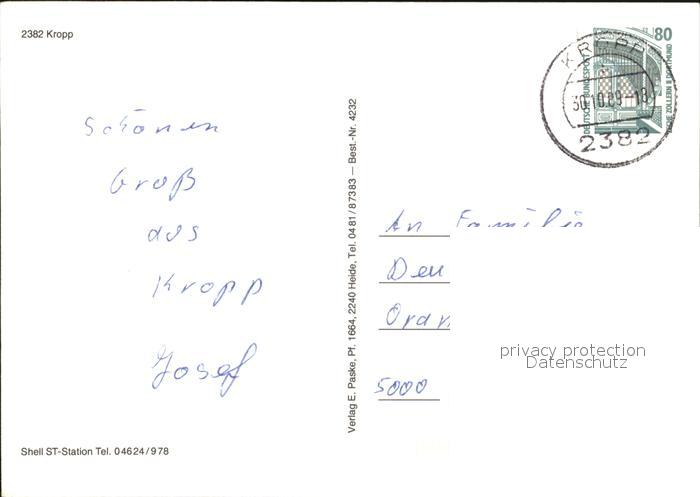 2382 Kropp
Schönen
Gruß
aus
Kropp
Josef
Shell ST-Station Tel. 04624/978
Verlag E. Paske, Pf. 1664, 2240 Heide, Tel. 0481/87383 — Best.-Nr. 4232
80
DEUTSCHE BUNDESPOST
ZECHE ZOLLERN II DORTMUND
KROPP
30.10.89-18
2382
An Familie
5000
privacy protection
Datenschutz